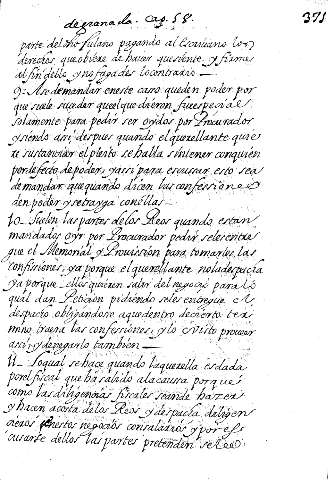 de granada. Cap. 58.
371
parte del dho fulano pagando al Escrivano los
derechos, que obiere de haver que siente, y firmas
al fin dello, y no hagades lo contrario
9. Ase demandar en este caso que den poder por
que suele suceder que el que dieron fue especial
solamente para pedir ser oydos por Procurador
y siendo asi, despues quando el querellante quie
re sustanciar el pleyto se halla sin tener con quien
por defecto de poder, y assi para escusar esto se a
de mandar que quando dicen las confessiones
den poder y se traya con ellas.
10. Suelen las partes de los Reos quando estan
mandados oyr por Procurador pedir se les entre
gue el Memorial, y Provission para tomarles las
confissiones, ya porque el querellante no la despacha
ya porque ellos quieren salir del negocio para lo
qual dan Peticion pidiendo se les entregue el
despacho obligandose a que dentro de cierto ter
mino traeran las confessiones, y lo e visto proveer
assi, y denegarlo tambien
11. Lo qual se hace quando la querella es dada
por el fiscal que ha salido a la causa porque
como las diligencias fiscales se an de hazer
y hacen a costa de los Reos y despacha diligen
cieros en estos negocios con salarios y por es
cusarse dellos las partes pretenden se les